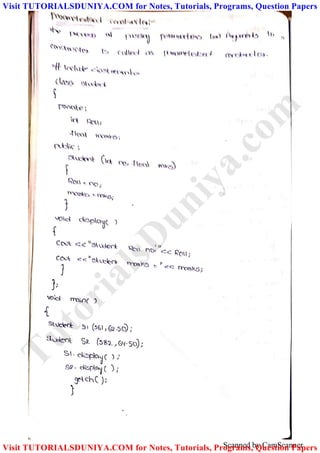 Visit TUTORIALSDUNIYA.COM for Notes, Tutorials, Programs, Question Papers
Parameterised constructor:
the process of passing parameters and Arguments to a
constructor is called as parameterised constructor.
# include <iostream.h>
class student
{
private:
int Roll;
float marks;
public:
student (int no, float mrks)
{
Roll = no;
marks = mrks;
}
void display( )
{
cout << "student Roll no" << Roll;
cout << "student marks = " << marks;
}
};
void main( )
{
student s1 (561, 62.50);
student s2 (582, 64.50);
s1. display( );
s2. display( );
getch( );
}
TutorialsDuniya.com
Scanned by CamScanner
Visit TUTORIALSDUNIYA.COM for Notes, Tutorials, Programs, Question Papers